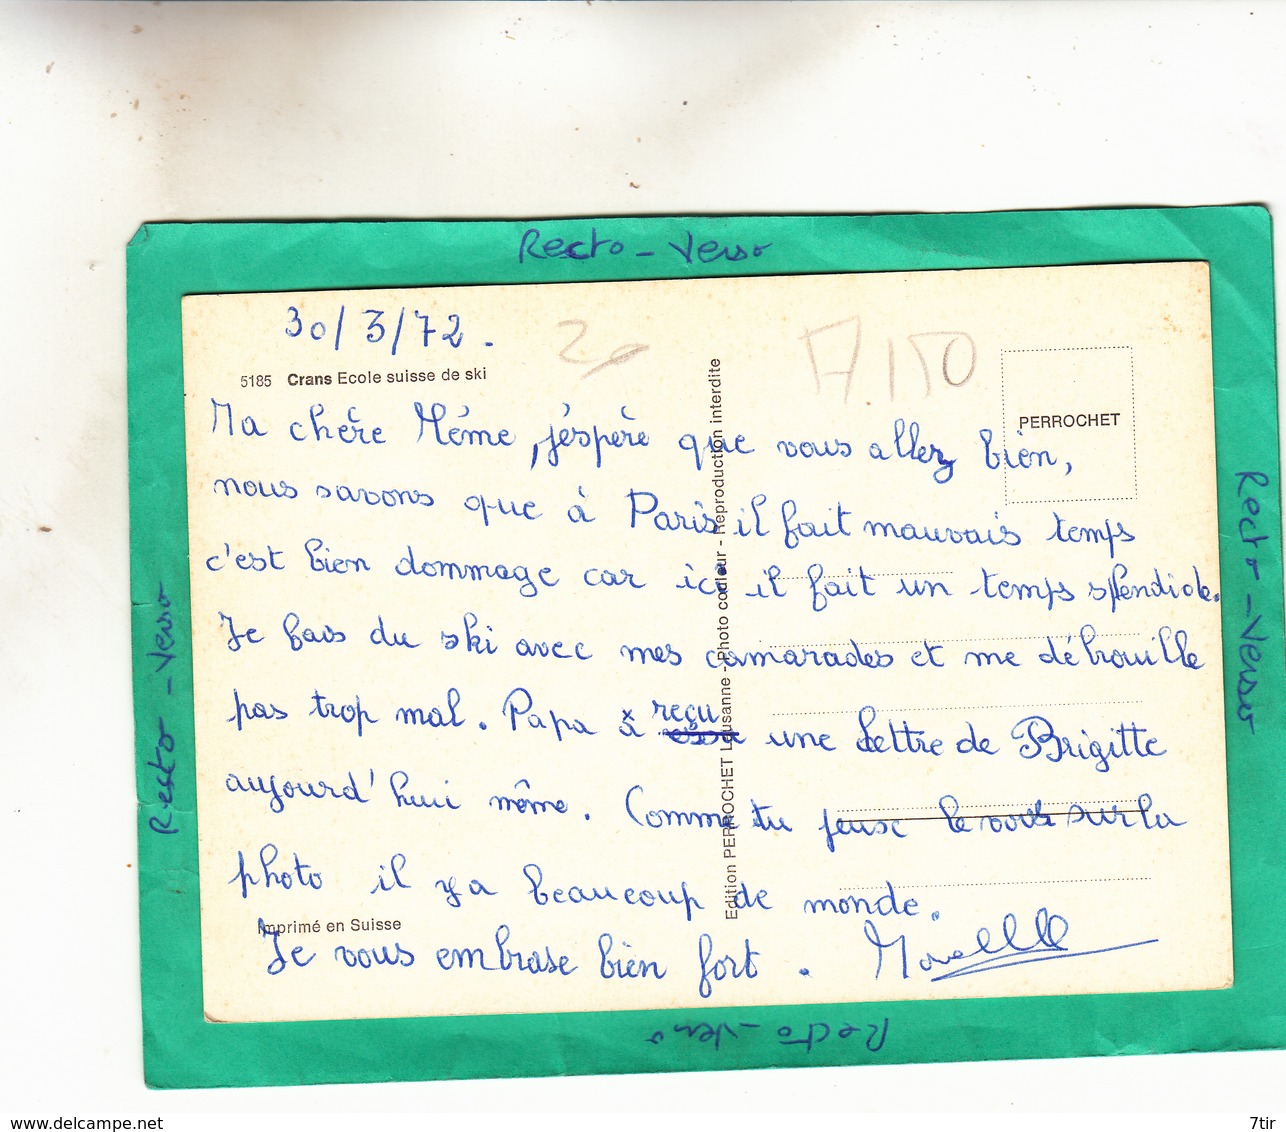 Recto - Verso
30/3/72.
20
A.150
5185 Crans Ecole suisse de ski
PERROCHET
Ma chère Mémé, j'éspère que vous allez bien,
nous savons que à Paris il fait mauvais temps
c'est bien dommage car ici il fait un temps splendide.
Je fais du ski avec mes camarades et me débrouille
pas trop mal. Papa à reçu une lettre de Brigitte
aujourd'hui même. Comme tu peuse le voir sur la
photo il y a beaucoup de monde.
Imprimé en Suisse
Je vous embrase bien fort.
Edition PERROCHET Lausanne - Photo couleur - Reproduction interdite
Recto - Verso
Recto - Verso
Recto - Verso
www.delcampe.net
7tir